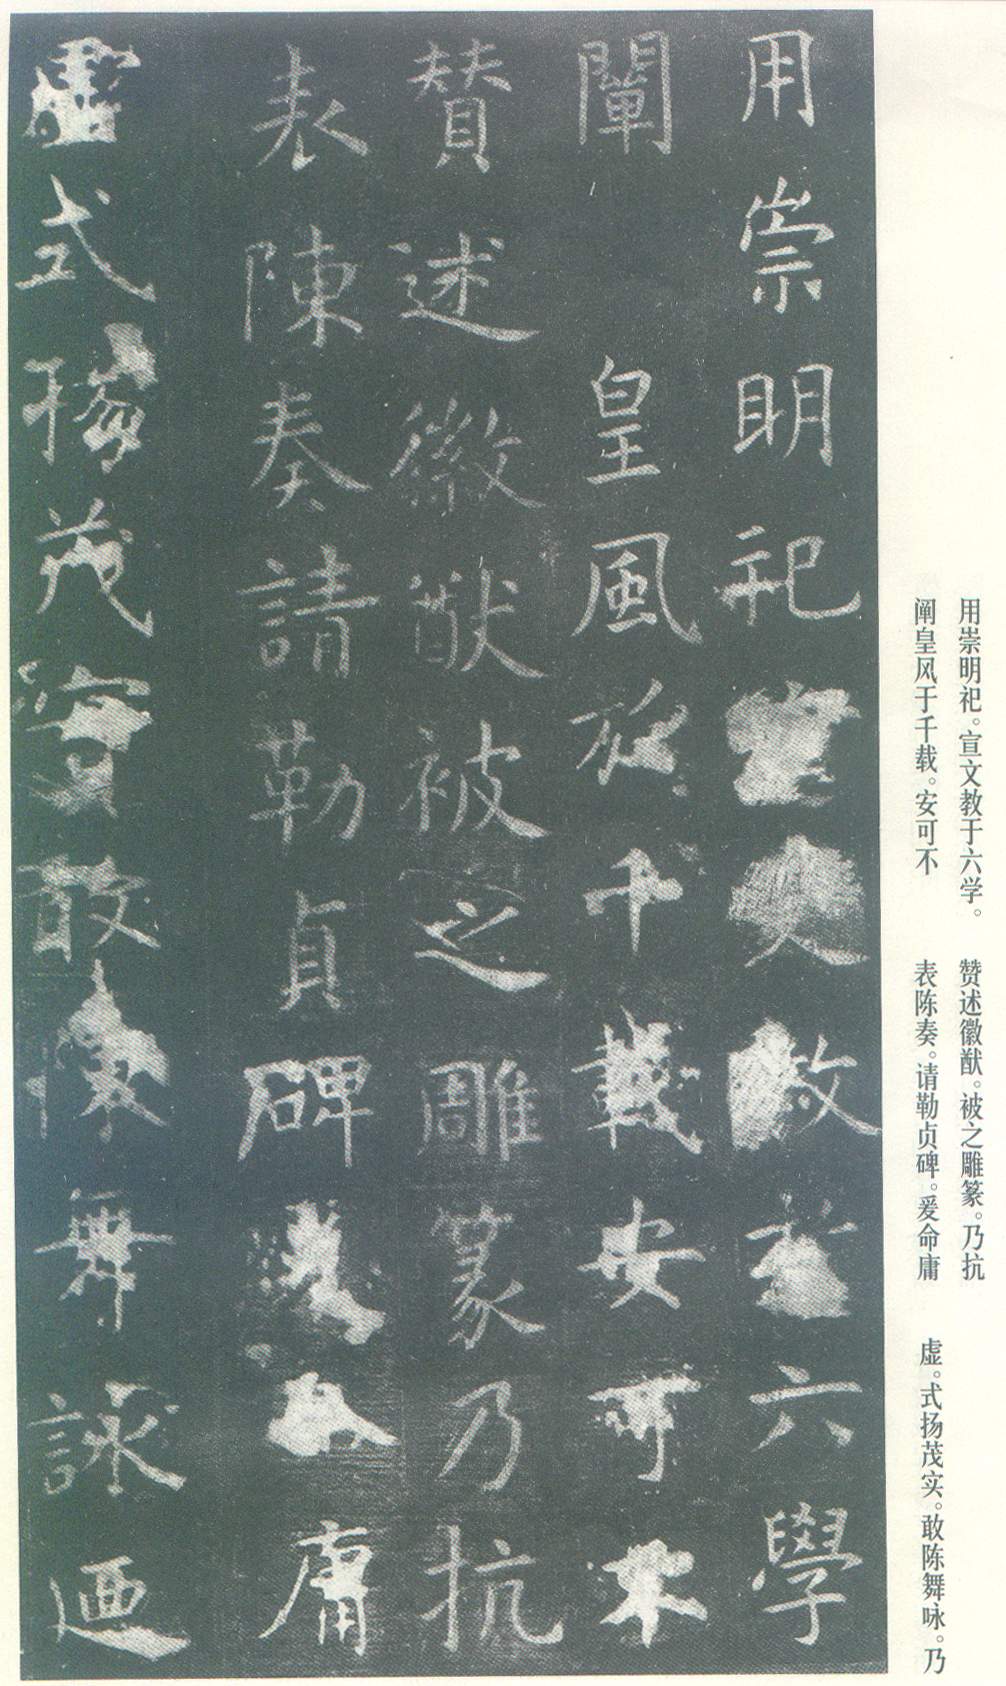 用崇明祀。宣文教于六学。
阐皇风于千载。安可不
赞述徽猷。被之雕篆。乃抗
表陈奏。请勒贞碑。爰命庸
虚。式扬茂实。敢陈舞咏。乃
用崇明祀宣文教於六學
闡皇風於千載安可不
贊述徽猷被之雕篆乃抗
表陳奏請勒貞碑爰命庸
虛式揚茂實敢陳舞詠迺